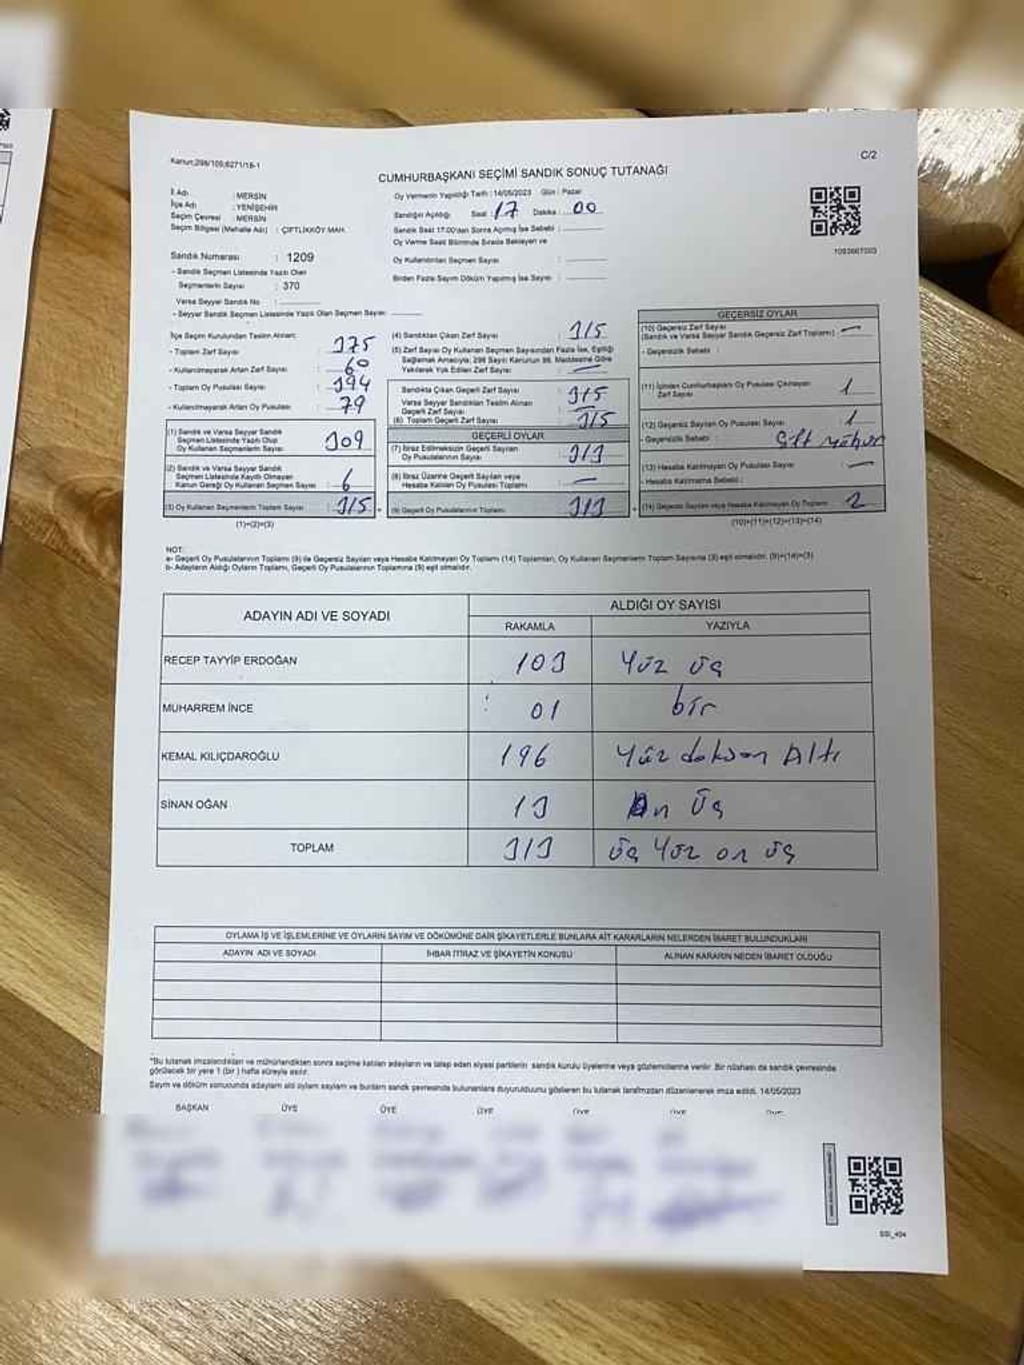 Kanun:298/105;6271/16-1
C/2
CUMHURBAŞKANI SEÇİMİ SANDIK SONUÇ TUTANAĞI
İl Adı : MERSİN
İlçe Adı : YENİŞEHİR
Seçim Çevresi : MERSİN
Seçim Bölgesi (Mahalle Adı) : ÇİFTLİKKÖY MAH.
Sandık Numarası : 1209
- Sandık Seçmen Listesinde Yazılı Olan
Seçmenlerin Sayısı : 370
Varsa Seyyar Sandık No :
- Seyyar Sandık Seçmen Listesinde Yazılı Olan Seçmen Sayısı :
Oy Vermenin Yapıldığı Tarih : 14/05/2023 Gün : Pazar
Sandığın Açıldığı Saat : 17 Dakika : 00
Sandık Saat 17.00'dan Sonra Açılmış İse Sebebi :
Oy Verme Saati Bitiminde Sırada Bekleyen ve
Oy Kullandırılan Seçmen Sayısı :
Birden Fazla Sayım Döküm Yapılmış İse Sayısı :
1093667003
İlçe Seçim Kurulundan Teslim Alınan:
- Toplam Zarf Sayısı : 375
- Kullanılmayarak Artan Zarf Sayısı : 60
- Toplam Oy Pusulası Sayısı : 394
- Kullanılmayarak Artan Oy Pusulası : 79
(1) Sandık ve Varsa Seyyar Sandık
Seçmen Listesinde Yazılı Olup
Oy Kullanan Seçmenlerin Sayısı : 309
(2) Sandık ve Varsa Seyyar Sandık
Seçmen Listesinde Kayıtlı Olmayan
Kanun Gereği Oy Kullanan Seçmen Sayısı : 6
(3) Oy Kullanan Seçmenlerin Toplam Sayısı : 315
(1)+(2)=(3)
(4) Sandıktan Çıkan Zarf Sayısı : 315
(5) Zarf Sayısı Oy Kullanan Seçmen Sayısından Fazla İse, Eşitliği
Sağlamak Amacıyla; 298 Sayılı Kanunun 98. Maddesine Göre
Yakılarak Yok Edilen Zarf Sayısı : —
Sandıkta Çıkan Geçerli Zarf Sayısı : 315
Varsa Seyyar Sandıktan Teslim Alınan
Geçerli Zarf Sayısı : —
(6) Toplam Geçerli Zarf Sayısı : 315
GEÇERLİ OYLAR
(7) İtiraz Edilmeksizin Geçerli Sayılan
Oy Pusulalarının Sayısı : 313
(8) İtiraz Üzerine Geçerli Sayılan veya
Hesaba Katılan Oy Pusulası Toplamı : —
(9) Geçerli Oy Pusulalarının Toplamı : 313
GEÇERSİZ OYLAR
(10) Geçersiz Zarf Sayısı : —
(Sandık ve Varsa Seyyar Sandık Geçersiz Zarf Toplamı)
- Geçersizlik Sebebi :
(11) İçinden Cumhurbaşkanı Oy Pusulası Çıkmayan
Zarf Sayısı : 1
(12) Geçersiz Sayılan Oy Pusulası Sayısı : 1
- Geçersizlik Sebebi : Çift mühür
(13) Hesaba Katılmayan Oy Pusulası Sayısı : —
- Hesaba Katılmama Sebebi :
(14) Geçersiz Sayılan veya Hesaba Katılmayan Oy Toplamı : 2
(10)+(11)+(12)+(13)=(14)
NOT:
a- Geçerli Oy Pusulalarının Toplamı (9) ile Geçersiz Sayılan veya Hesaba Katılmayan Oy Toplamı (14) Toplamları, Oy Kullanan Seçmenlerin Toplam Sayısına (3) eşit olmalıdır. (9)+(14)=(3)
b- Adayların Aldığı Oyların Toplamı, Geçerli Oy Pusulalarının Toplamına (9) eşit olmalıdır.
ADAYIN ADI VE SOYADI
ALDIĞI OY SAYISI
RAKAMLA YAZIYLA
RECEP TAYYİP ERDOĞAN 103 Yüz üç
MUHARREM İNCE 01 bir
KEMAL KILIÇDAROĞLU 196 Yüz doksan Altı
SİNAN OĞAN 13 On Üç
TOPLAM 313 üç Yüz on üç
OYLAMA İŞ VE İŞLEMLERİNE VE OYLARIN SAYIM VE DÖKÜMÜNE DAİR ŞİKAYETLERLE BUNLARA AİT KARARLARIN NELERDEN İBARET BULUNDUKLARI
ADAYIN ADI VE SOYADI İHBAR İTİRAZ VE ŞİKAYETİN KONUSU ALINAN KARARIN NEDEN İBARET OLDUĞU
*Bu tutanak imzalandıktan ve mühürlendikten sonra seçime katılan adayların ve talep eden siyasi partilerin sandık kurulu üyelerine veya gözlemcilerine verilir. Bir nüshası da sandık çevresinde
görülecek bir yere 1 (bir) hafta süreyle asılır.
Sayım ve döküm sonucunda adayların aldığı oyların sayılarını ve bunların sandık çevresinde bulunanlara duyurulduğunu gösteren bu tutanak tarafımızdan düzenlenerek imza edildi. 14/05/2023
BAŞKAN ÜYE ÜYE ÜYE ÜYE ÜYE ÜYE
SSI_404